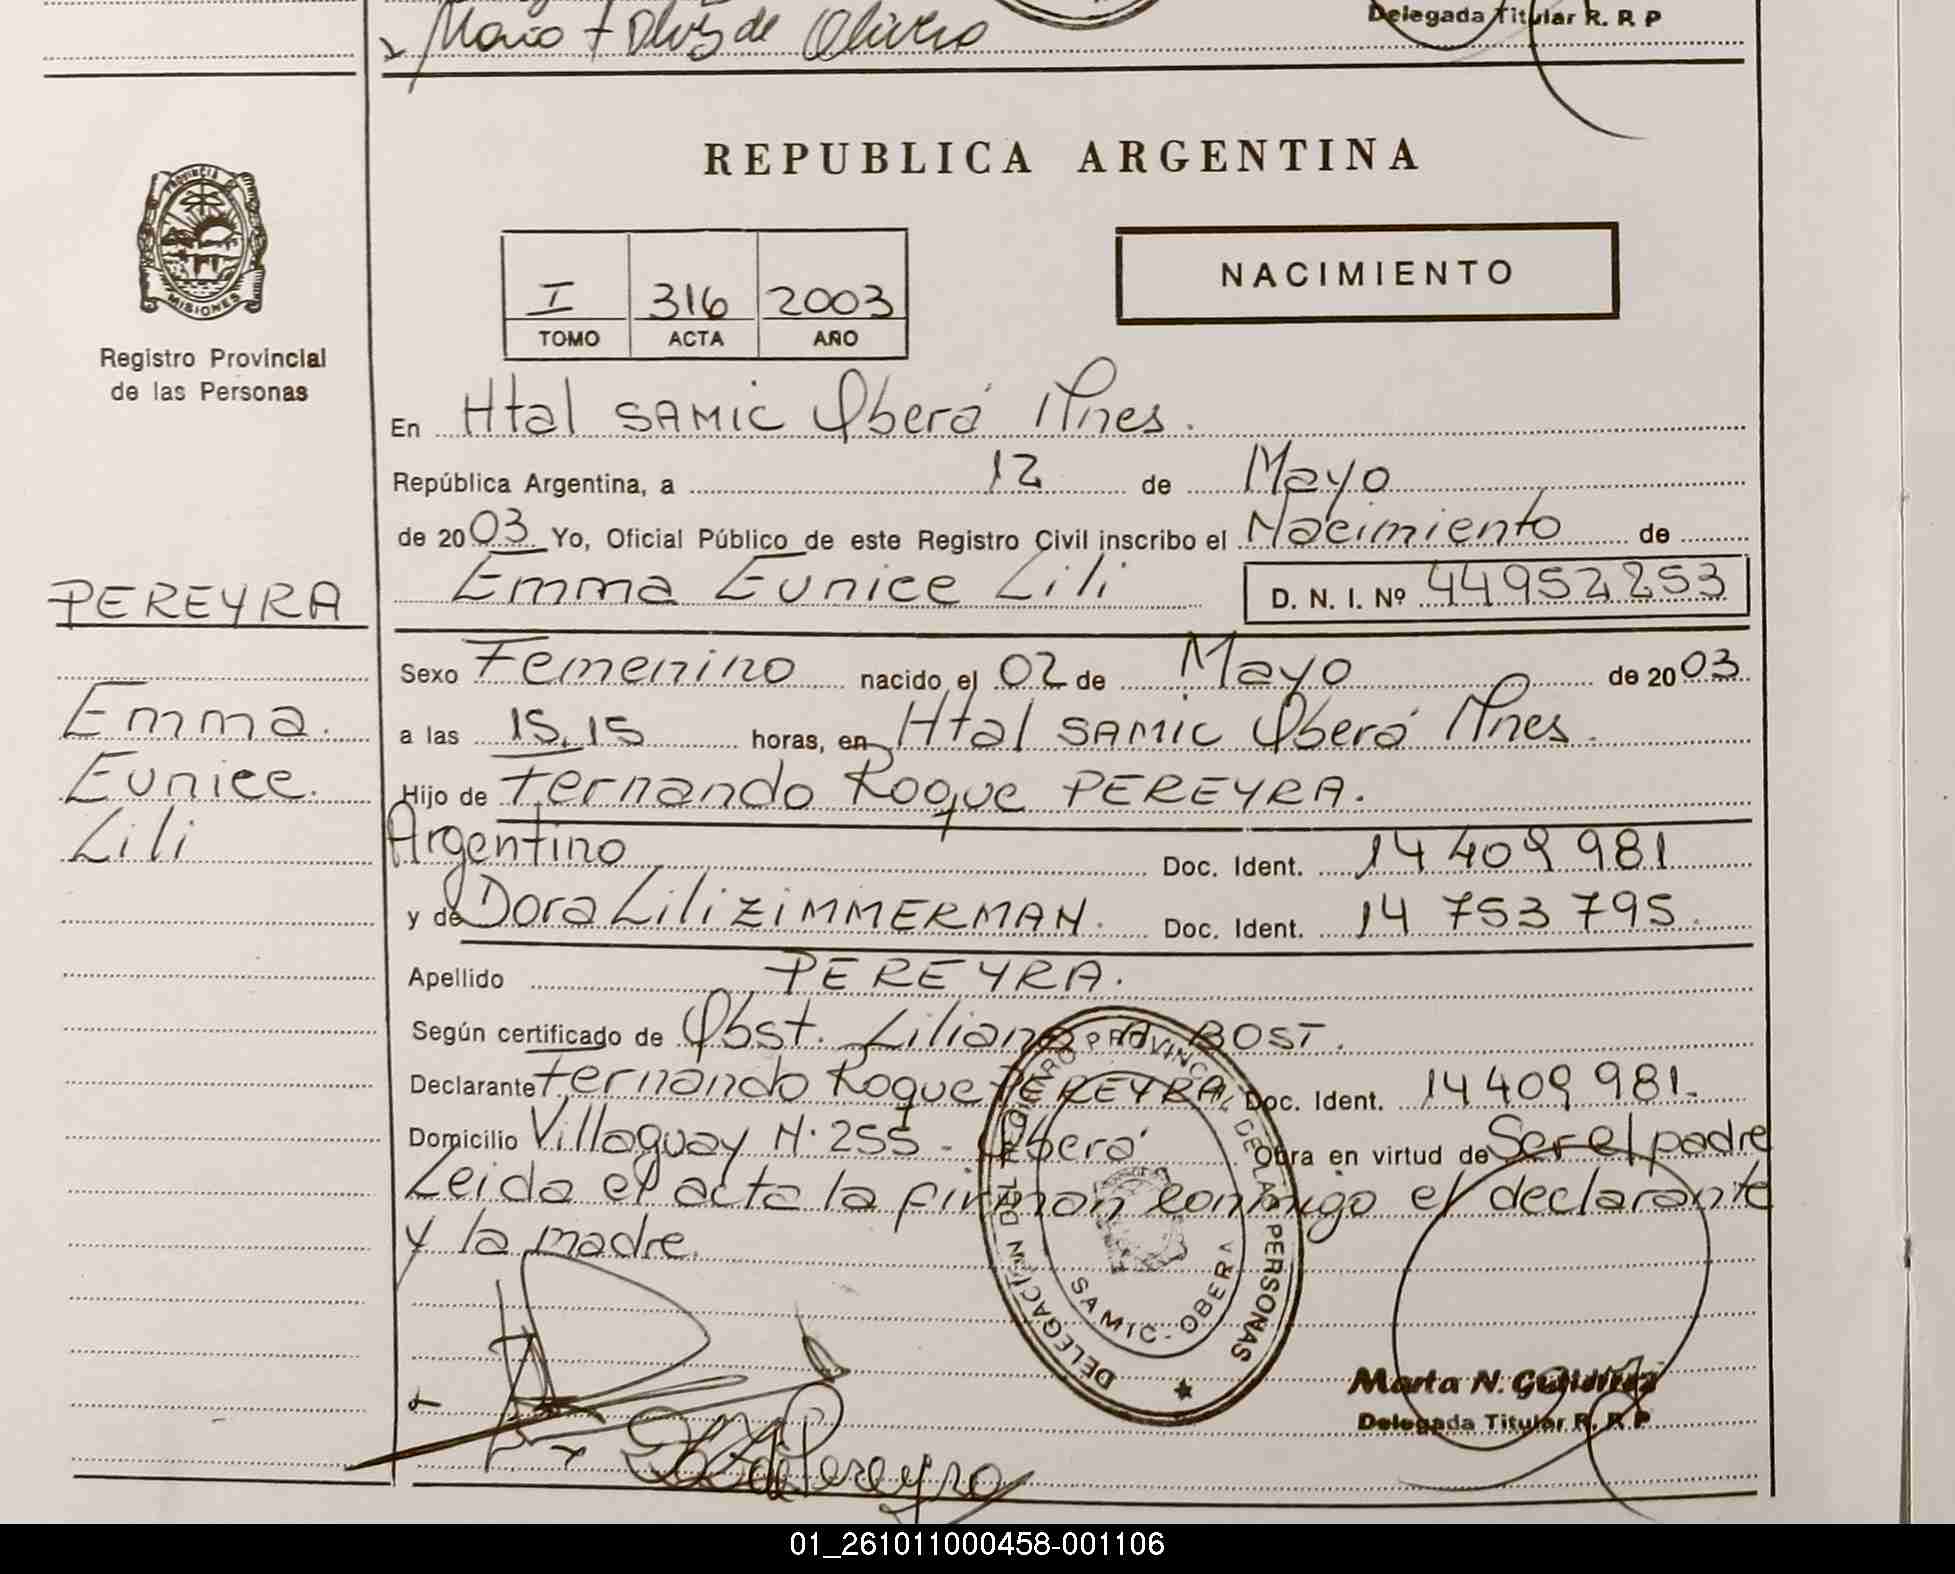 Delegada Titular R. R. P
de Olivera
REPUBLICA ARGENTINA
PROVINCIA DE
MISIONES
Registro Provincial
de las Personas
NACIMIENTO
I 316 2003
TOMO ACTA AÑO
En Htal SAMIC Oberá Mnes.
República Argentina, a 12 de Mayo
de 2003 Yo, Oficial Público de este Registro Civil inscribo el Nacimiento de
Emma Eunice Lili D. N. I. Nº 44952253
PEREYRA
Emma
Eunice
Lili
Sexo Femenino nacido el 02 de Mayo de 2003
a las 15,15 horas, en Htal SAMIC Oberá Mnes.
Hijo de Fernando Roque PEREYRA.
Argentino Doc. Ident. 14 409 981
y de Dora Lili ZIMMERMAN. Doc. Ident. 14 753 795.
Apellido PEREYRA.
Según certificado de Obst. Liliana A BOST.
Declarante Fernando Roque PEREYRA Doc. Ident. 14 409 981.
Domicilio Villaguay N. 255 - Oberá Obra en virtud de Ser el padre
Leida el acta la firman conmigo el declarante
y la madre.
DELEGACIÓN DEL REGISTRO PROVINCIAL DE LAS PERSONAS
SAMIC - OBERA
Marta N. Gutiérrez
Delegada Titular R. R. P
de Pereyra
01_261011000458-001106